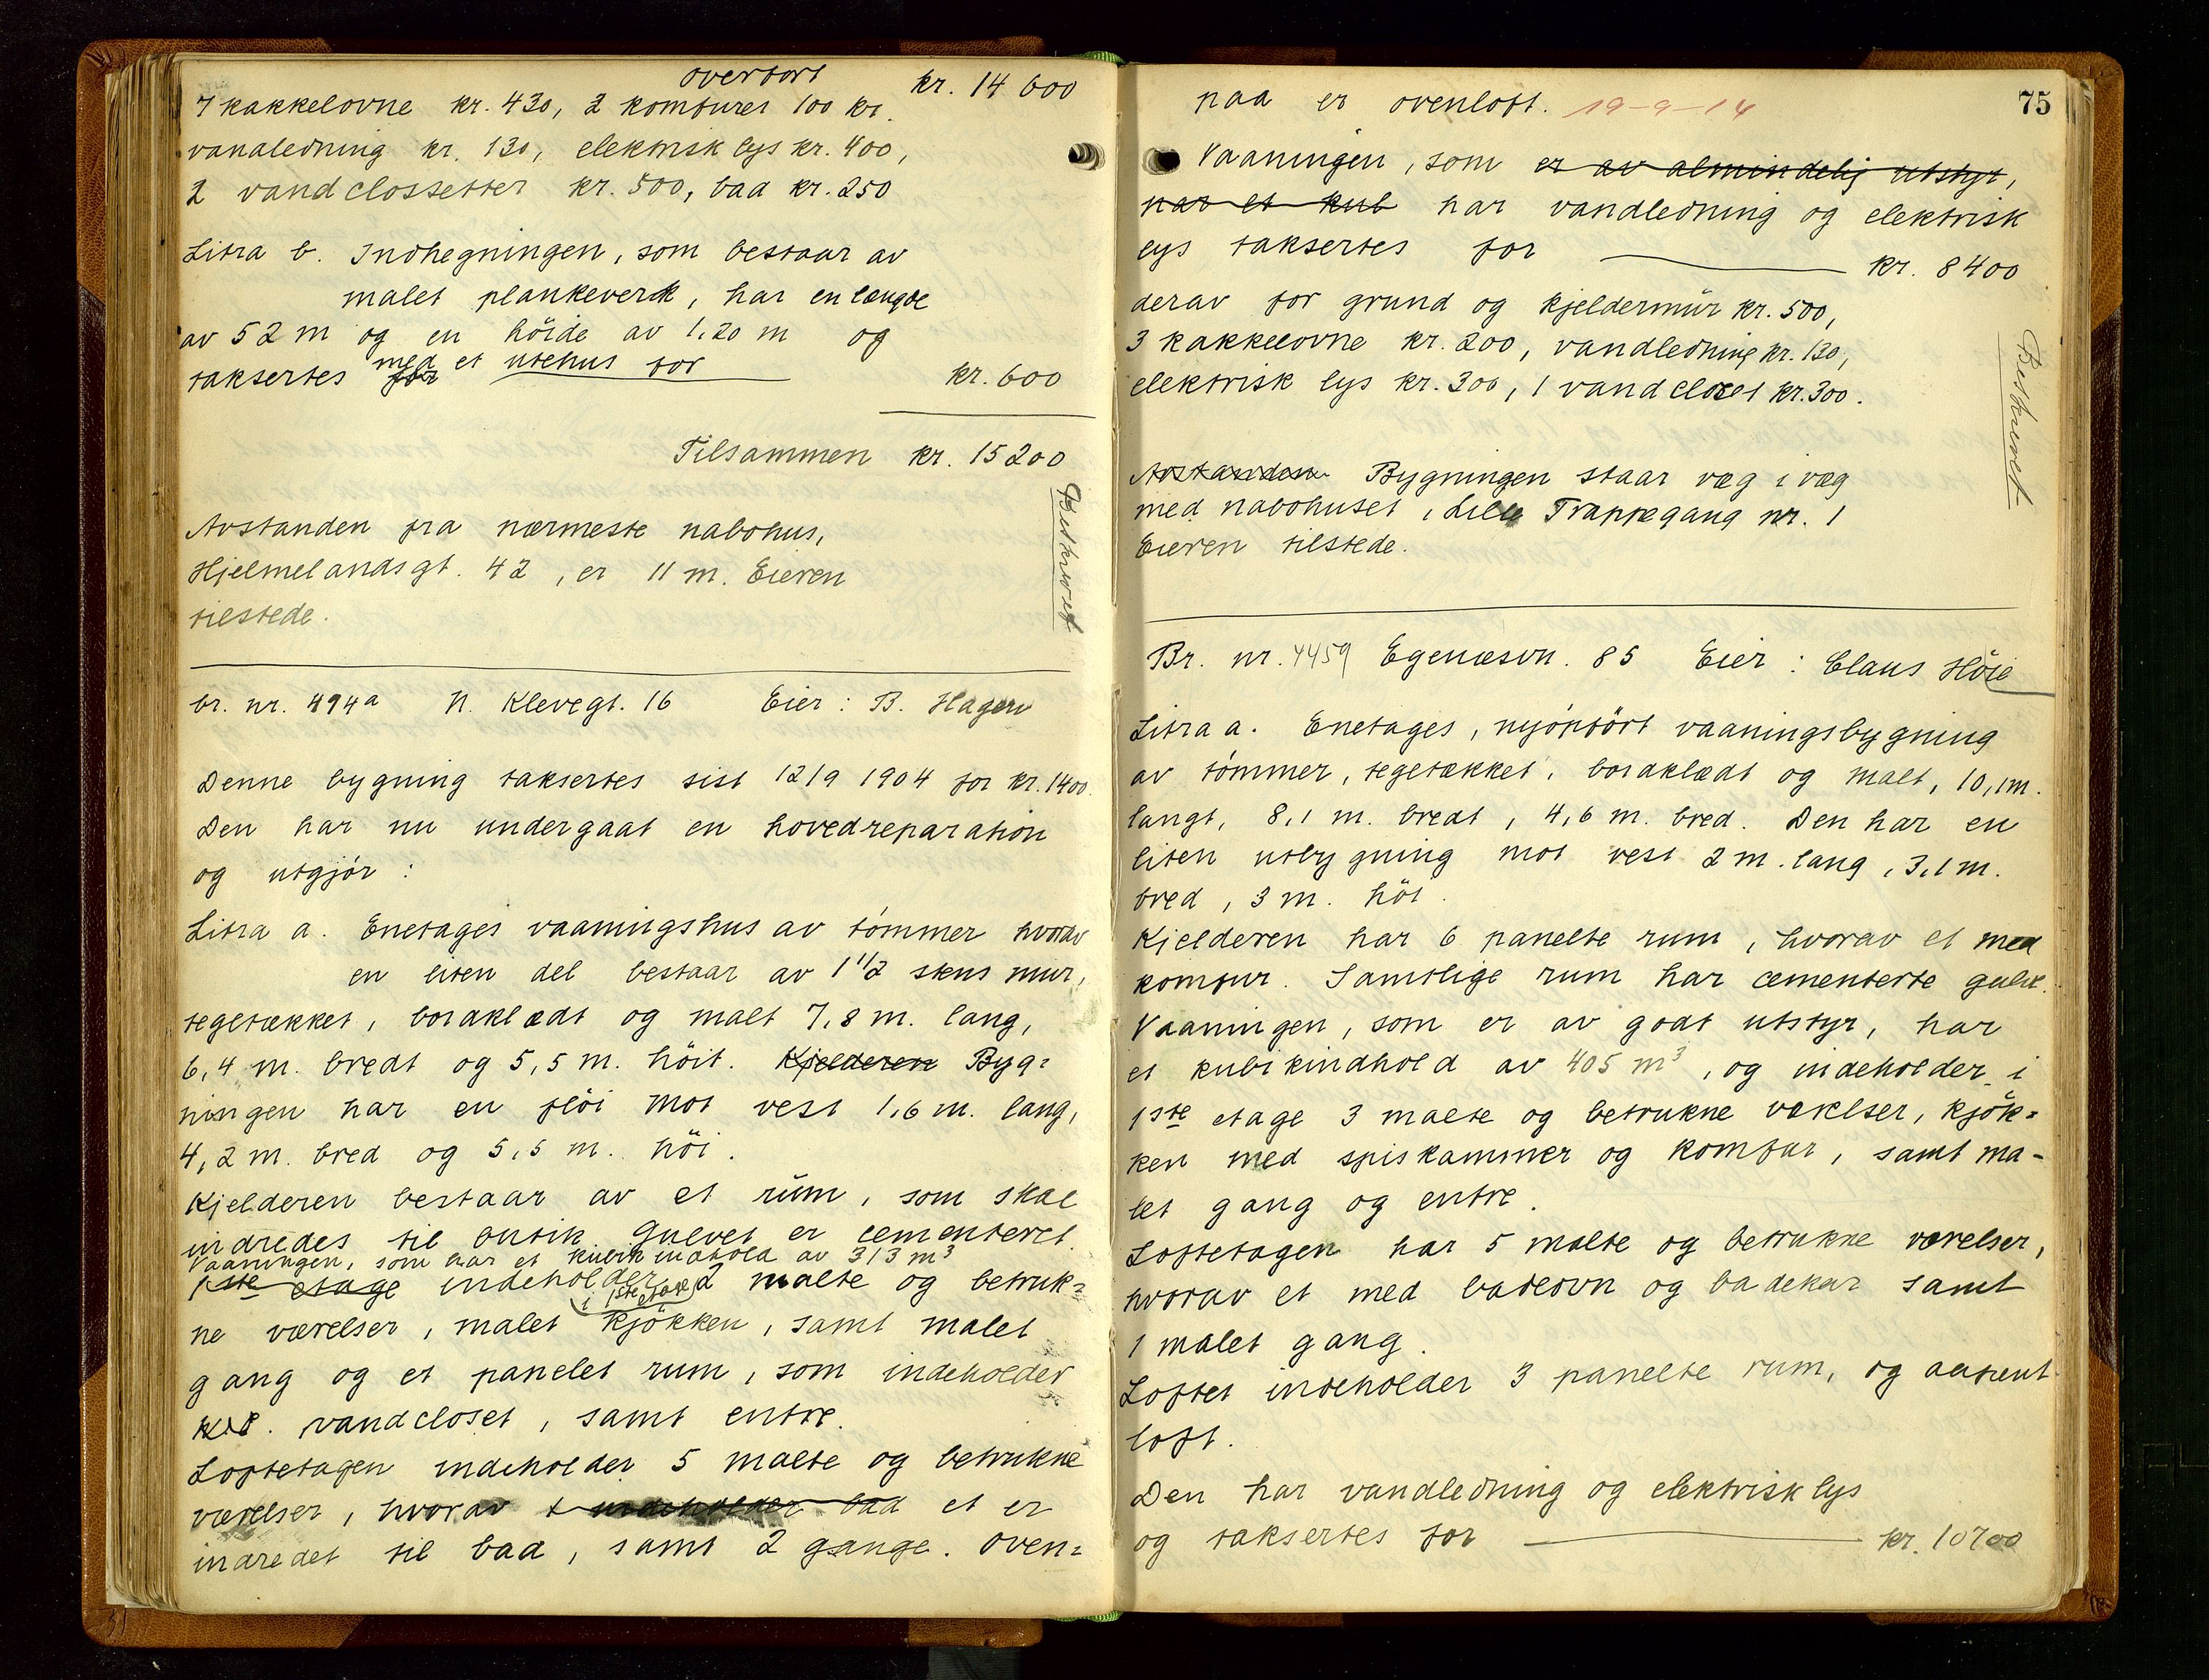 overført kr. 14 600
7 kakkelovne kr. 430, 2 komfurer 100 kr.
vandledning kr. 130, elektrisk lys kr. 400,
2 vandclossetter kr. 500, bad kr. 250
Litra b. Indhegningen, som bestaar av
malet plankeverk, har en længde
av 52 m og en höide av 1,20 m og
taksertes for med et utehus for kr. 600
Tilsammen kr. 15200
Avstanden fra nærmeste nabohus,
Hjelmelandsgt. 42, er 11 m. Eieren
tilstede.
Beskrevet
br. nr. 494a N. Klevegt. 16 Eier: B. Hagen
Denne bygning taksertes sist 12/9 1904 for kr. 1400.
Den har nu undergaat en hovedreparation
og utgjør:
Litra a. Enetages vaaningshus av tømmer hvorav
en liten del bestaar av 1 1/2 stens mur,
teglækket, bordklædt og malt 7,8 m. lang,
6,4 m. bredt og 5,5 m. höit. Kjelderen Byg=
ningen har en flöi mot vest 1,6 m. lang,
4,2 m. bred og 5,5 m. höi.
Kjelderen bestaar av et rum, som skal
indredes til butik. Gulvet er cementeret.
Vaaningen, som har et kubikindhold av 313 m3
1ste etage indeholder i 1ste etage 2 malte og betruk=
ne værelser, malet kjøkken, samt malet
gang og et panelet rum, som indeholder
vandcloset, samt entre.
Loftetagen indeholder 5 malte og betrukne
værelser, hvorav 1 indeholder bad et er
indredet til bad, samt 2 gange. Oven=
75
paa er ovenloft. 19-9-14
Vaaningen, som er av almindelig utstyr,
har et kub har vandledning og elektrisk
lys taksertes for kr. 8400
derav for grund og kjeldermur kr. 500,
3 kakkelovne kr. 200, vandledning kr. 130,
elektrisk lys kr. 300, 1 vandcloset kr. 300.
Beskrevet
Avstanden Bygningen staar væg i væg
med nabohuset, Lille Trappegang nr. 1
Eieren tilstede.
Br. nr. 4459 Egenæsvn. 85 Eier: Claus Höie
Litra a. Enetages, nyopført vaaningsbygning
av tømmer, tegetækket, bordklædt og malt, 10,1 m.
langt, 8,1 m. bredt, 4,6 m. bred. Den har en
liten utbygning mot vest 2 m. lang, 3,1 m.
bred, 3 m. höi.
Kjelderen har 6 panelte rum, hvorav et med
komfur. Samtlige rum har cementerte gulv.
Vaaningen, som er av godt utstyr, har
et kubikindhold av 405 m3, og indeholder i
1ste etage 3 malte og betrukne værelser, kjök=
ken med spiskammer og komfur, samt ma-
let gang og entre.
Loftetagen har 5 malte og betrukne værelser,
hvorav et med badeovn og badekar samt
1 malet gang.
Loftet indeholder 3 panelte rum, og aapent
loft.
Den har vandledning og elektrisk lys
og taksertes for kr. 10700